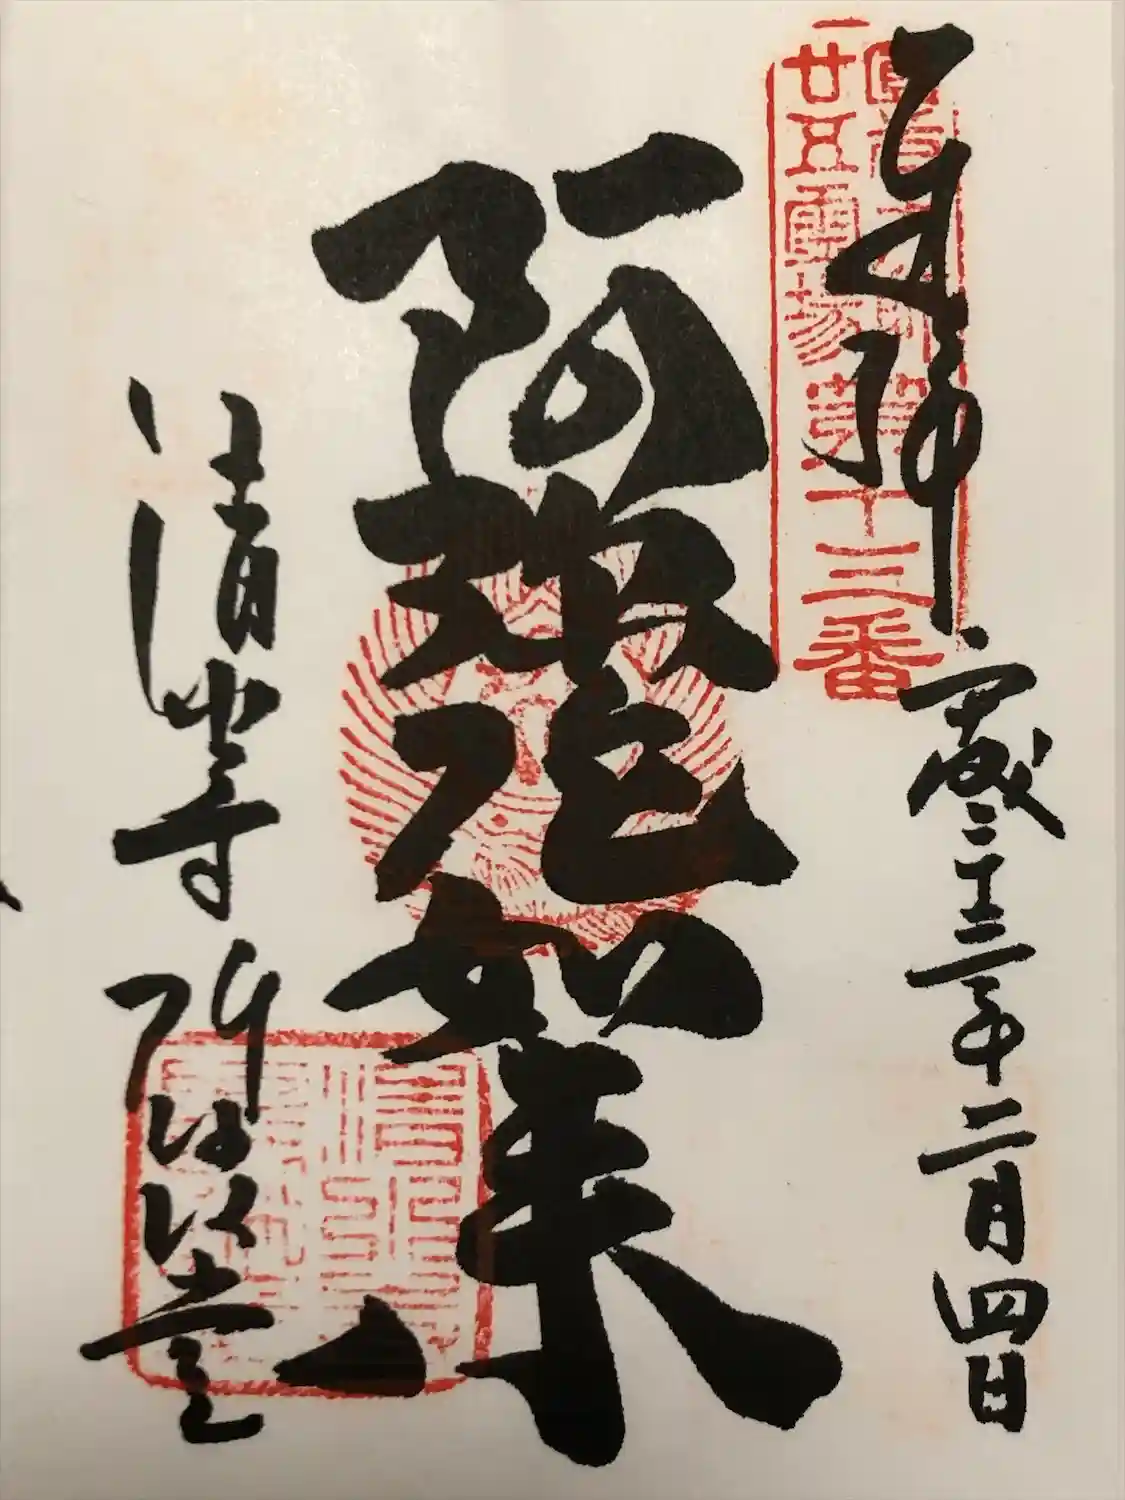 奉拝
圓光大師
廿五霊場
第十三番
平成二十三年二月四日
阿弥陀如来
清水寺 阿弥陀堂